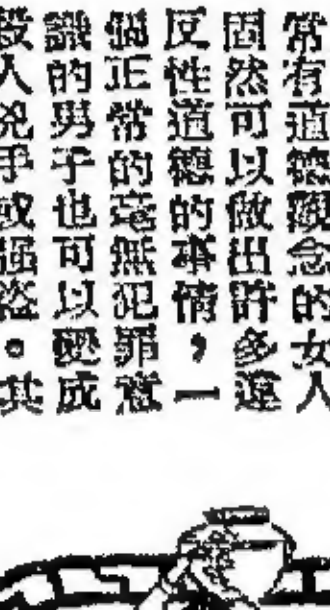 常有道德觀念的女人
固然可以做出許多違
反性道德的事情，一
個正常的毫無犯罪意
識的男子也可以變成
殺人兇手或强盜。其